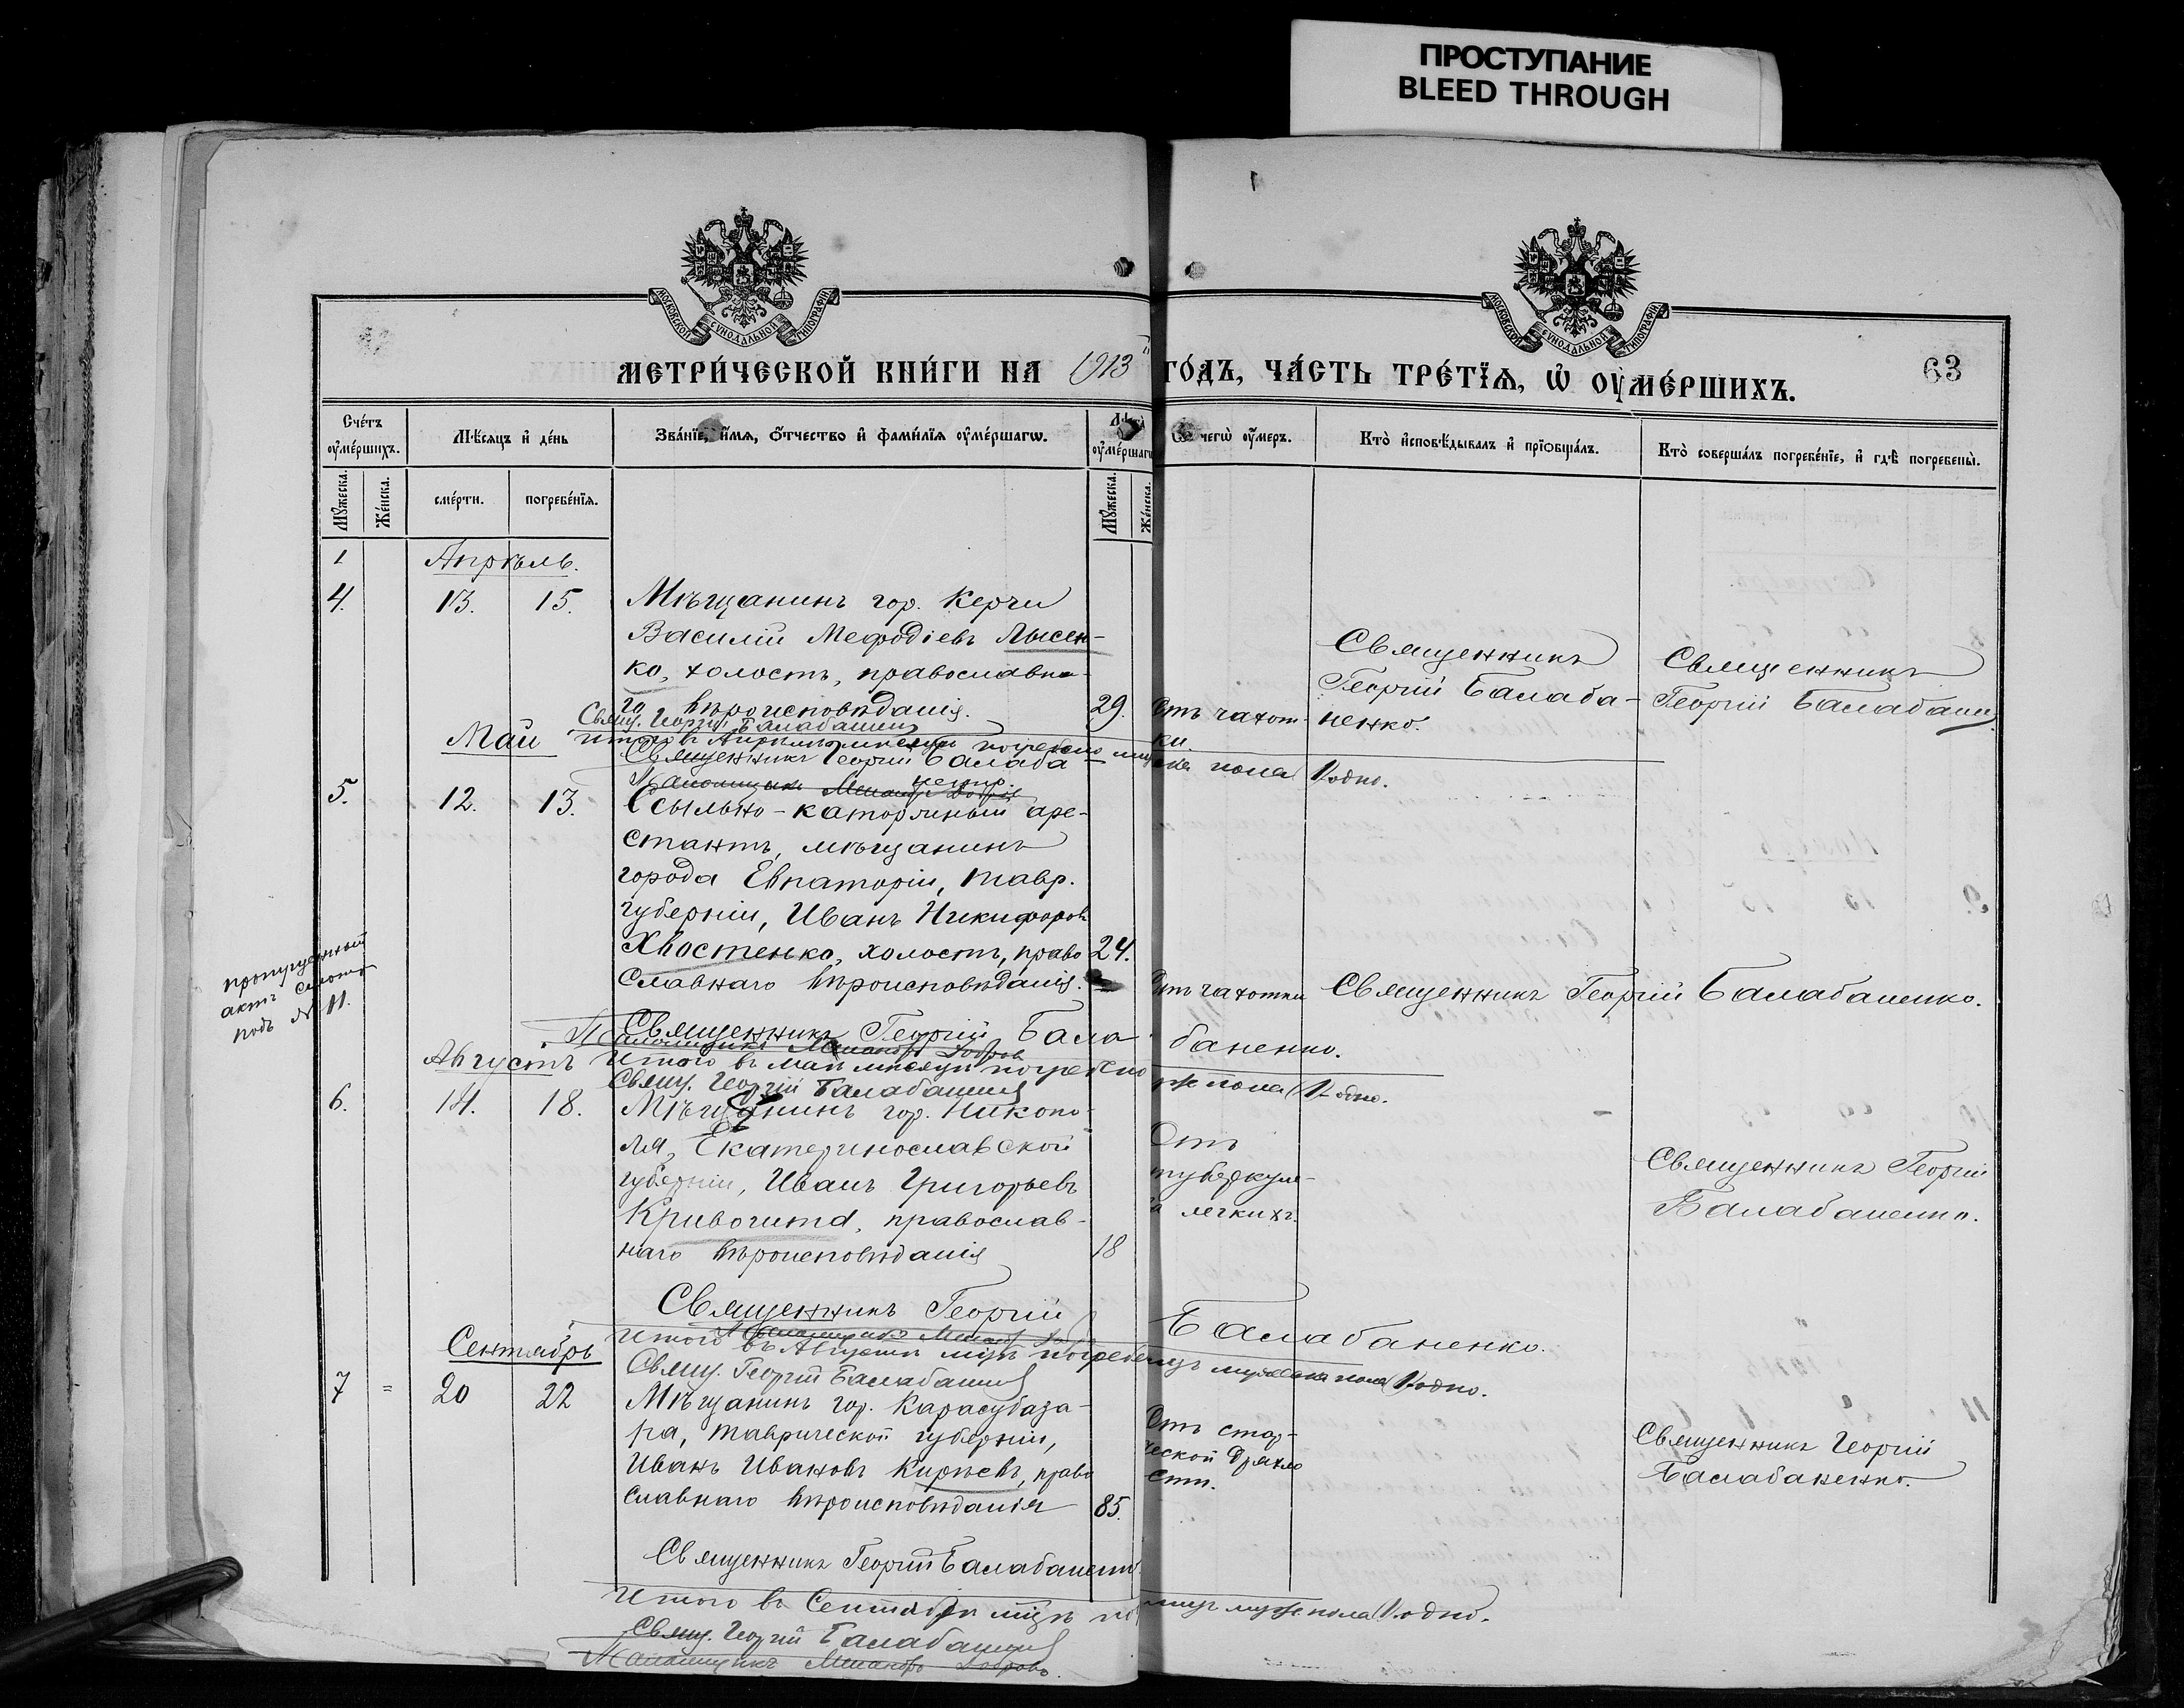 ПРОСТУПАНИЕ
BLEED THROUGH
МОСКОВСКОЙ СУНОДАЛЬНОЙ ТИПОГРАФІИ
МОСКОВСКОЙ СУНОДАЛЬНОЙ ТИПОГРАФІИ
МЕТРИ́ЧЕСКОЙ КНИ́ГИ НА 1913 ГО́ДЪ, ЧА́СТЬ ТРЕ́ТЇѦ, Ѡ҆ ОУ҆МЕ́РШИХЪ.
63
Сче́тъ оу҆ме́ршихъ.
Мѣ́сяцъ и҆ де́нь
Зва́нїе, и҆́мя, ѻ҆́тчество и҆ фами́лїя оу҆ме́ршагѡ.
Лѣта̀ оу҆ме́ршагѡ
Ѿ чегѡ̀ оу҆́меръ.
Кто̀ и҆сповѣ́дывалъ и҆ прїѻбща́лъ.
Кто̀ соверша́лъ погребе́нїе, и҆ гдѣ̀ погребены̀.
Мꙋ́жеска.
Же́нска.
сме́рти.
погребе́нїя.
Мꙋ́жеска.
Же́нска.
1
Апрѣль.
4.
13.
15.
Мѣщанинъ гор. Керчи
Василій Мефодіевъ Лысен-
ко, холостъ, православна-
го вѣроисповѣданія.
29.
Отъ чахот-
ки.
Священникъ
Георгій Балаба-
ненко.
Священникъ
Георгій Балабанен
Свящ. Георгій Балабаненко
Май
Итого въ Апрѣлѣ мѣсяцѣ погребено
пола 1 одно.
Священникъ Георгій Балаба
ненко
5.
12.
13.
Ссыльно-каторжный аре-
стантъ, мѣщанинъ
города Евпаторіи, Тавр.
губерніи, Иванъ Никифоровъ
Хвостенко, холостъ, право
славнаго вѣроисповѣданія.
24.
Отъ чахотки
Священникъ Георгій Балабаненко.
пропущенный
актъ
подъ № 11.
Священникъ Георгій Бала баненко.
Августъ
Итого въ маѣ мѣсяцѣ погребено
муж пола 1 одно.
Свящ. Георгій Балабаненко
6.
14.
18.
Мѣщанинъ гор. Никопо-
ля, Екатеринославской
губерніи, Иванъ Григорьевъ
Кривочита, православ-
наго вѣроисповѣданія
18
Отъ
туберкуле-
за легкихъ.
Священникъ Георгій
Балабаненко.
Священникъ Георгій Балабаненко.
Сентябрь
Итого въ Августѣ мцѣ погребен
мужеска пола 1 одно.
Свящ. Георгій Балабаненко
7
=
20
22
Мѣщанинъ гор. Карасубаза-
ра, Таврической губерніи,
Иванъ Ивановъ Кирѣевъ, право
славнаго вѣроисповѣданія
85.
Отъ стар-
ческой дряхло
сти.
Священникъ Георгій
Балабаненко.
Священникъ Георгій Балабаненко
Итого въ Сентябрѣ мцѣ по
муж пола 1 одно.
Свящ. Георгій Балабаненко